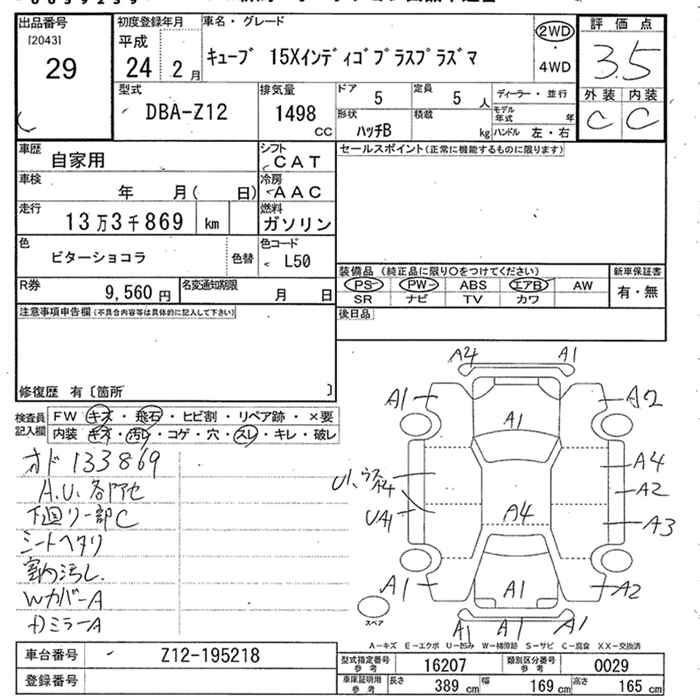 出品番号
[2043]
29
初度登録年月
平成
24 2月
車名・グレード
キューブ 15Xインディゴプラスプラズマ
2WD
・
4WD
評価点
3.5
外装 内装
C C
型式
DBA-Z12
排気量
1498
CC
ドア
5
定員
5 人
ディーラー・並行
モデル年式 年
形状
ハッチB
積載
kg
ハンドル 左・右
車歴
自家用
シフト
CAT
セールスポイント(正常に機能するものに限ります)
車検
年 月( 日)
冷房
AAC
走行
13万3千869 km
燃料
ガソリン
色
ビターショコラ
色替
色コード
L50
装備品(純正品に限り○をつけてください)
PS PW ABS エアB AW
SR ナビ TV カワ
新車保証書
有・無
R券
9,560円
名変通知期限
月 日
後日品
注意事項申告欄(不具合内容等は具体的に記入して下さい)
修復歴 有〔箇所 〕
検査員記入欄
FW キズ・飛石・ヒビ割・リペア跡・×要
内装 キズ・汚れ・コゲ・穴・スレ・キレ・破レ
オド133869
A.U.各所色
下廻り一部C
シートヘタリ
室内汚レ
WカバーA
DミラーA
A4 A1
A1 A1 A2
A4
A2
A3
A4
UA1
A1 A1 A2
A1 A1 A1
スペア
A-キズ E-エクボ U-凹み W-補修跡 S-サビ C-腐食 XX-交換済
車台番号
Z12-195218
登録番号
型式指定番号参考
16207
類別区分番号参考
0029
車庫証明用参考
長さ 389 cm
幅 169 cm
高さ 165 cm